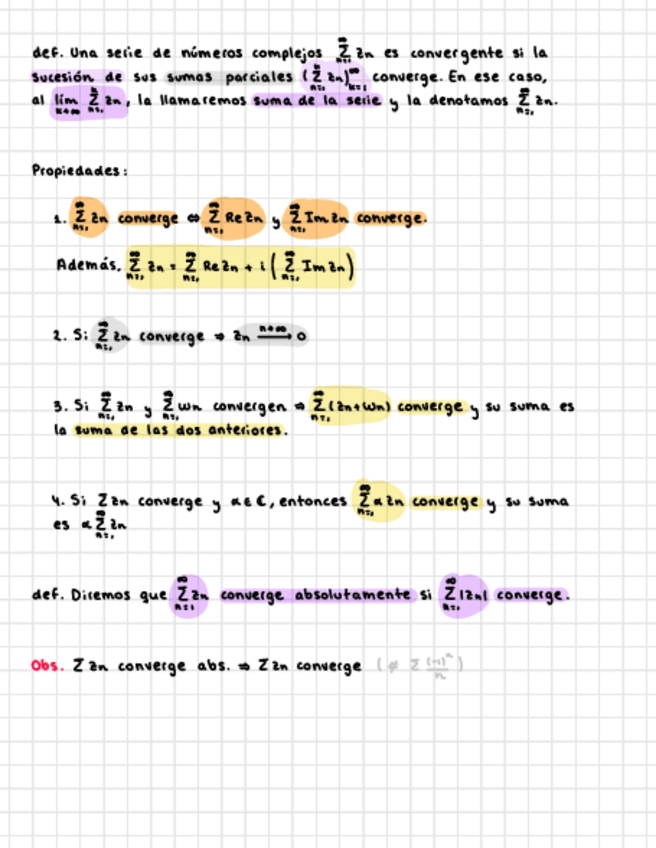 def. Una serie de números complejos ∞Σn=1 zn es convergente si la
sucesión de sus sumas parciales (kΣn=1 zn)∞k=1 converge. En ese caso,
al lím k→∞ kΣn=1 zn, la llamaremos suma de la serie y la denotamos ∞Σn=1 zn.
Propiedades:
1. ∞Σn=1 zn converge ⇔ ∞Σn=1 Re zn y ∞Σn=1 Im zn converge.
Además, ∞Σn=1 zn = ∞Σn=1 Re zn + i (∞Σn=1 Im zn)
2. Si ∞Σn=1 zn converge ⇒ zn n→∞ ⟶ 0
3. Si ∞Σn=1 zn y ∞Σn=1 wn convergen ⇒ ∞Σn=1 (zn+wn) converge y su suma es
la suma de las dos anteriores.
4. Si Σ zn converge y α ∈ ℂ, entonces ∞Σn=1 α zn converge y su suma
es α ∞Σn=1 zn
def. Diremos que ∞Σn=1 zn converge absolutamente si ∞Σn=1 |zn| converge.
Obs. Σ zn converge abs. ⇒ Σ zn converge (⇍ Σ (-1)^n/n)